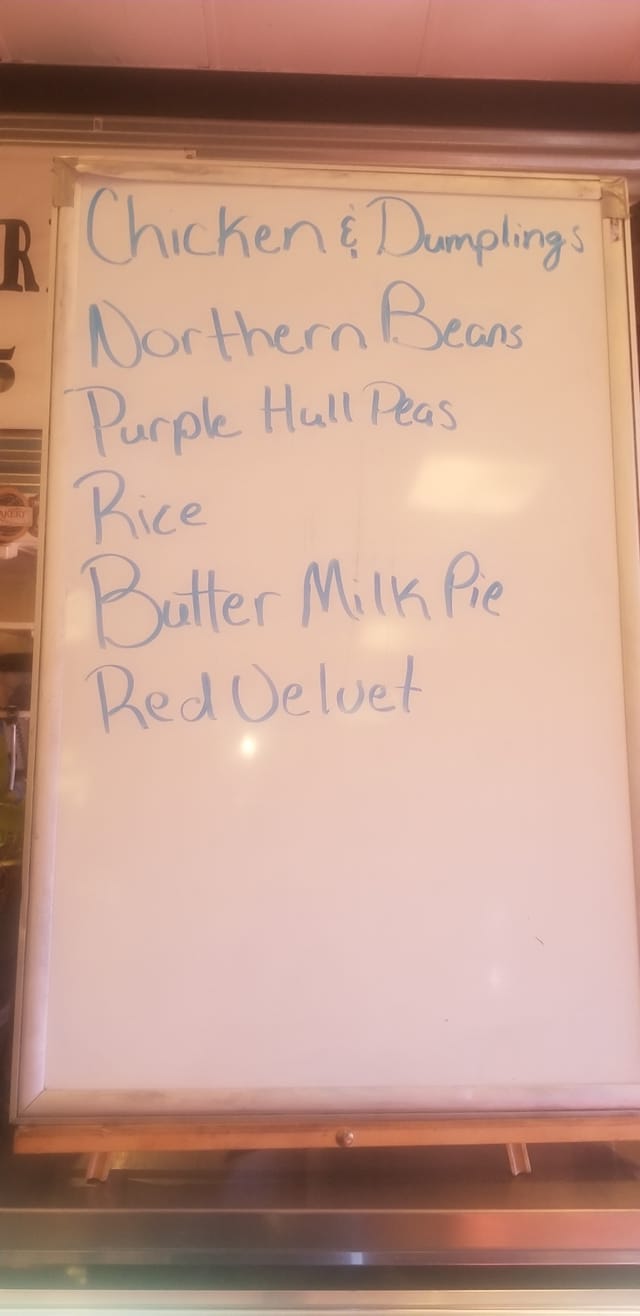 Chicken & Dumplings
Northern Beans
Purple Hull Peas
Rice
Butter Milk Pie
Red Velvet
R
5